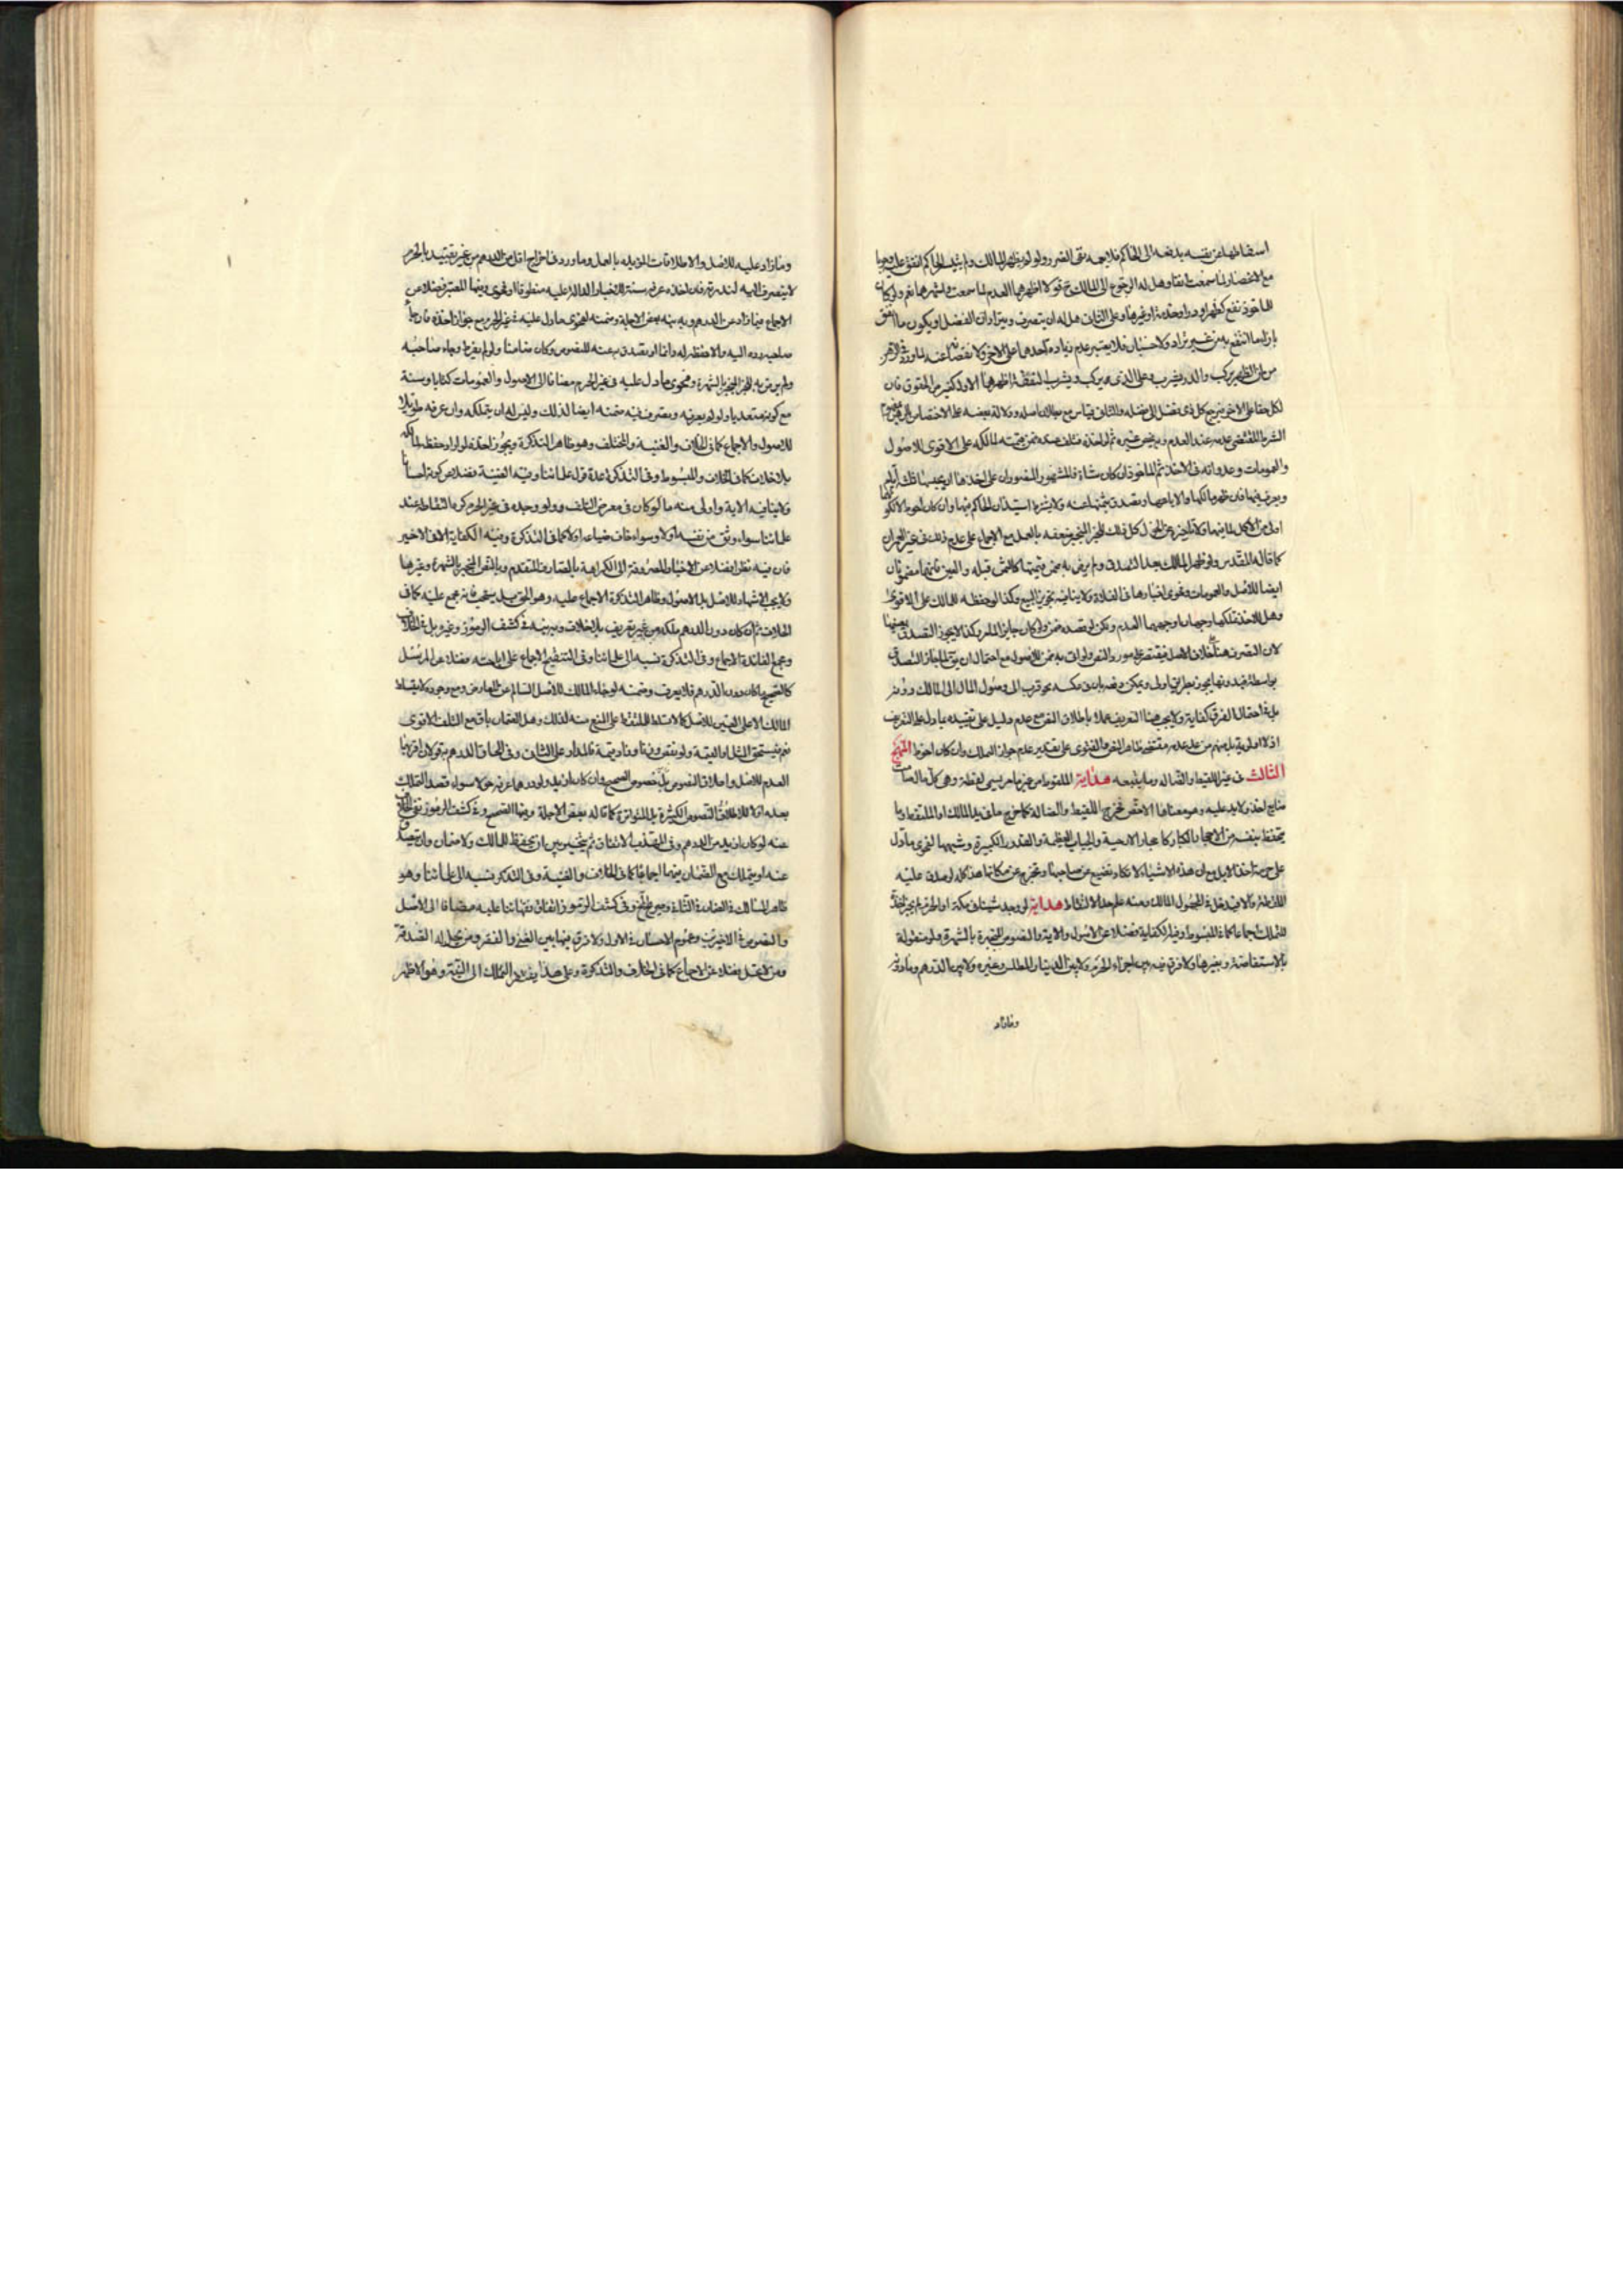 اسقاطها عن نفسه بدفعه الى الحاكم فلا يجه نفى الضرر ولو لم يظهر المالك ولم يثبت الحاكم انفق عليه وجوبا
مع الانحصار لما سمعت انفا وهل له الرجوع الى المالك ح قولا اظهرهما العدم لما سمعت واشهرهما نعم ولو كان
للماخوذ نفع كظهر او در او خدمة او غيرها وعلى الثانى هل له ان يتصرف ويترادان الفضل او يكون ما انفق
بازاء ما انتفع به من غير تراد ولا حسبان فلا يعتبر عدم زيادة احدهما على الاخر ولا نقصا عنه لما ورد فى الرهن
من ان الظهر يركب والدر يشرب وعلى الذى يركب ويشرب النفقة اظهرهما الاول كغيره من الحقوق فان
لكل حقا على الاخر فيرجع كل ذى فضل الى فضله والثانى قياس مع بطلان اصله
الشرط المقتضى عدمه عند العدم ثم لو اخذه فتلف عنده ضمن قيمته لمالكه على الاقوى للاصول
والعمومات وعدوانه فى الاخذ ثم الماخوذ ان كان شاة فالمشهور المنصور ان على اخذها ان يحبسها ثلثة ايام
ويعرف فيها فان ظهر مالكها والا باعها وتصدق بثمنها عنه ولا يشترط استيذان الحاكم فيها وان كان احوط
اولى من الاكل لما فيها كل ذلك للخبر المنجبر ضعفه بالعمل مع الاجماع على عدم ذلك فى غير العمران
كما قاله المقدس ولو ظهر المالك بعد التصدق ولم يرض به ضمن قيمتها كالثمن قبله والعين فانهما مضمونان
ايضا للاصل والعمومات وفحوى اخبارها فى الفلاة ولا ينافيه تجويز البيع وكذا لو حفظه للمالك على الاقوى
وهل للاخذ تملكها وجهان اوجههما العدم ولكن لو قصده ضمن ولو كان جايز الامر وكذا لا يجوز التصدق بعينها
لان التصرف هنا خلاف الاصل فيقتصر على مورد النص ولو اتى به ضمن للاصول مع احتمال ان يق لما جاز التصدق
بواسطة فبدونها يجوز بطريق اولى ويمكن دفعه بان فى عكسه نحو قرب الى وصول المال الى المالك ودونه
بل فى احتمال الفرق كفاية ولا يجب هنا التعريف عملا باطلاق النص مع عدم دليل على تقييده بما دل على التعريف
اذ لا اولوية بل منهم من عد عدمه مقتضى ظاهر النص والفتوى على تقدير عدم جواز التملك وان كان احوط المنهج
الثالث فى غير اللقيط والضالة وما يتبعه هداية الملقوط من غير ما مر يسمى لقطة وهى كل مال صامت
ضايع اخذ ولا يد عليه وهو معناها الاخص فخرج اللقيط والضالة كما خرج ما فى يد المالك او الملتقط وما
يتحفظ بنفسه من الاحجار الكبار كاحجار الارحية والحباب العظيمة والقدور الكبيرة وشبهها لفحوى ما دل
على حرمة اخذ الابل مع ان هذه الاشياء لا تكاد تضيع عن صاحبها ولا تخرج عن مكانها هذا كله لو صدق عليه
اللقطة والا فيدخل فى المجهول المالك ومنه علم حد الالتقاط هداية لو وجد شيئا فى مكة او الحرم لم يجز اخذه
للتملك اجماعا كما فى المبسوط وفى الكفاية فضلا عن الاصول والاية والنصوص المنجبرة بالشهرة ولو منقولة
بالاستفاضة وبغيرها ولا فرق فيه بين اجزاء الحرم ولا بين الدينار المطلس وغيره ولا بين الدرهم وما دونه
وما زاد
وما زاد عليه للاصل والاطلاقات المؤيدة بالعمل وما ورد فى اخراج اقل من الدرهم من غير تقييد بالحرم
لا ينصرف اليه لندرته فان اخذه عرفه سنة للاخبار الدالة عليه منطوقا او فحوى وفيها المعتبر فضلا عن
الاجماع فيما زاد عن الدرهم وبه نبه بعض الاجلة وضمنه لفحوى ما دل عليه فى غير الحرم مع جواز اخذه فان جاء
صاحبه رده اليه والا حفظه له دائما او تصدق به عنه للنصوص وكان ضامنا ولو لم يفرط وجاء صاحبه
ولم يرض به للخبر المنجبر بالشهرة وفحوى ما دل عليه فى غير الحرم مضافا الى الاصول والعمومات كتابا وسنة
مع كونه متعديا ولو لم يعرفه وتصرف فيه ضمنه ايضا لذلك وليس له ان يتملكه وان عرفه طويلا
للاصول والاجماع كما فى الخلاف والغنية والمختلف وهو ظاهر التذكرة ويجوز اخذه لو اراد حفظه لمالكه
بلا خلاف كما فى الخلاف والمبسوط وفى التذكرة عند قول علمائنا وفيه الغنية فضلا عن كونه احسانا
ولا ينافيه الاية واولى منه ما لو كان فى معرض التلف ولو وجده فى غير الحرم كره التقاطه عند
علمائنا سواء وثق من نفسه اولا وسواء خاف ضياعه اولا كما فى التذكرة وفيه الكفاية الا فى الاخير
فان فيه نظرا فضلا عن الاخبار المصروفة الى الكراهية بالصارف المتقدم وبالنص المنجبر بالشهرة وغيرها
ولا يجب الاشهاد للاصل بل الاصول وظاهر التذكرة الاجماع عليه وهو الحق بل يستحب مجمع عليه كما فى
الخلاف ثم ان كان دون الدرهم ملكه من غير تعريف بلا خلاف فى كشف الرموز وغيره بل فى الخلاف
ومجمع الفائدة الاجماع وفى التذكرة نسبه الى علمائنا وفى التنقيح الاجماع على اباحته فضلا عن المرسل
كالصحيح ما كان دون الدرهم فلا يعرف وضمنه لو جاء المالك للاصل السالم عن المعارض ومع وجوده لا يتسلط
المالك الا على العين للاصل كما لا يتسلط الملتقط على المنع منه لذلك وهل الضمان باق مع التلف الاقوى
نعم فيستحق المثل او القيمة ولو نقص وقتا وفاء وقيمة فالمدار على الثانى وفى الحاق الدرهم به قولان اقربهما
العدم للاصل واطلاق النصوص بل خصوص الصحيح وان كان ازيد ولو درهما عرفه حولا سواء قصد التملك
بعده اولا لاطلاق النصوص الكثيرة بل المتواترة كما قاله بعض الاجلة وفيها الصحيح وفى كشف الرموز نفى الخلاف
عنه لو كان ازيد من الدرهم وفى المقتصر الاتفاق ثم يتخير بين ان يحفظ للمالك ولا ضمان وان يتصدق
عنه او يتملك مع الضمان فيهما اجماعا كما فى الخلاف والغنية وفى التذكرة نسبه الى علمائنا وهو
ظاهر المسالك وفى كشف الرموز اتفاق فقهائنا عليه مضافا الى الاصل
والنصوص فى الاخيرين وعموم الاحسان فى الاول ولا فرق فيها بين الغنى والفقير ومن يحل له الصدقة
ومن لا يحل فضلا عن الاجماع كما فى الخلاف والتذكرة وعلى هذا يفتقر التملك الى النية وهو الاظهر